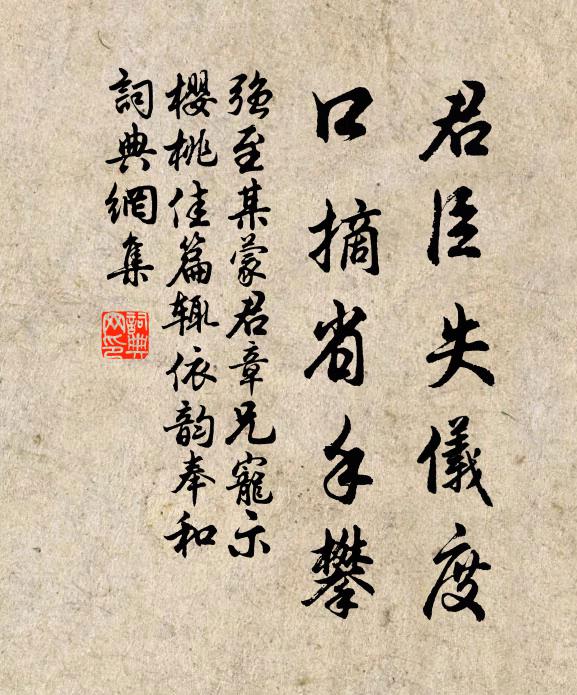 君臣失儀度
口摘省手攀
強至某蒙君章兄寵示
櫻桃佳篇辄依韵奉和
詞典網集
詞典
网印